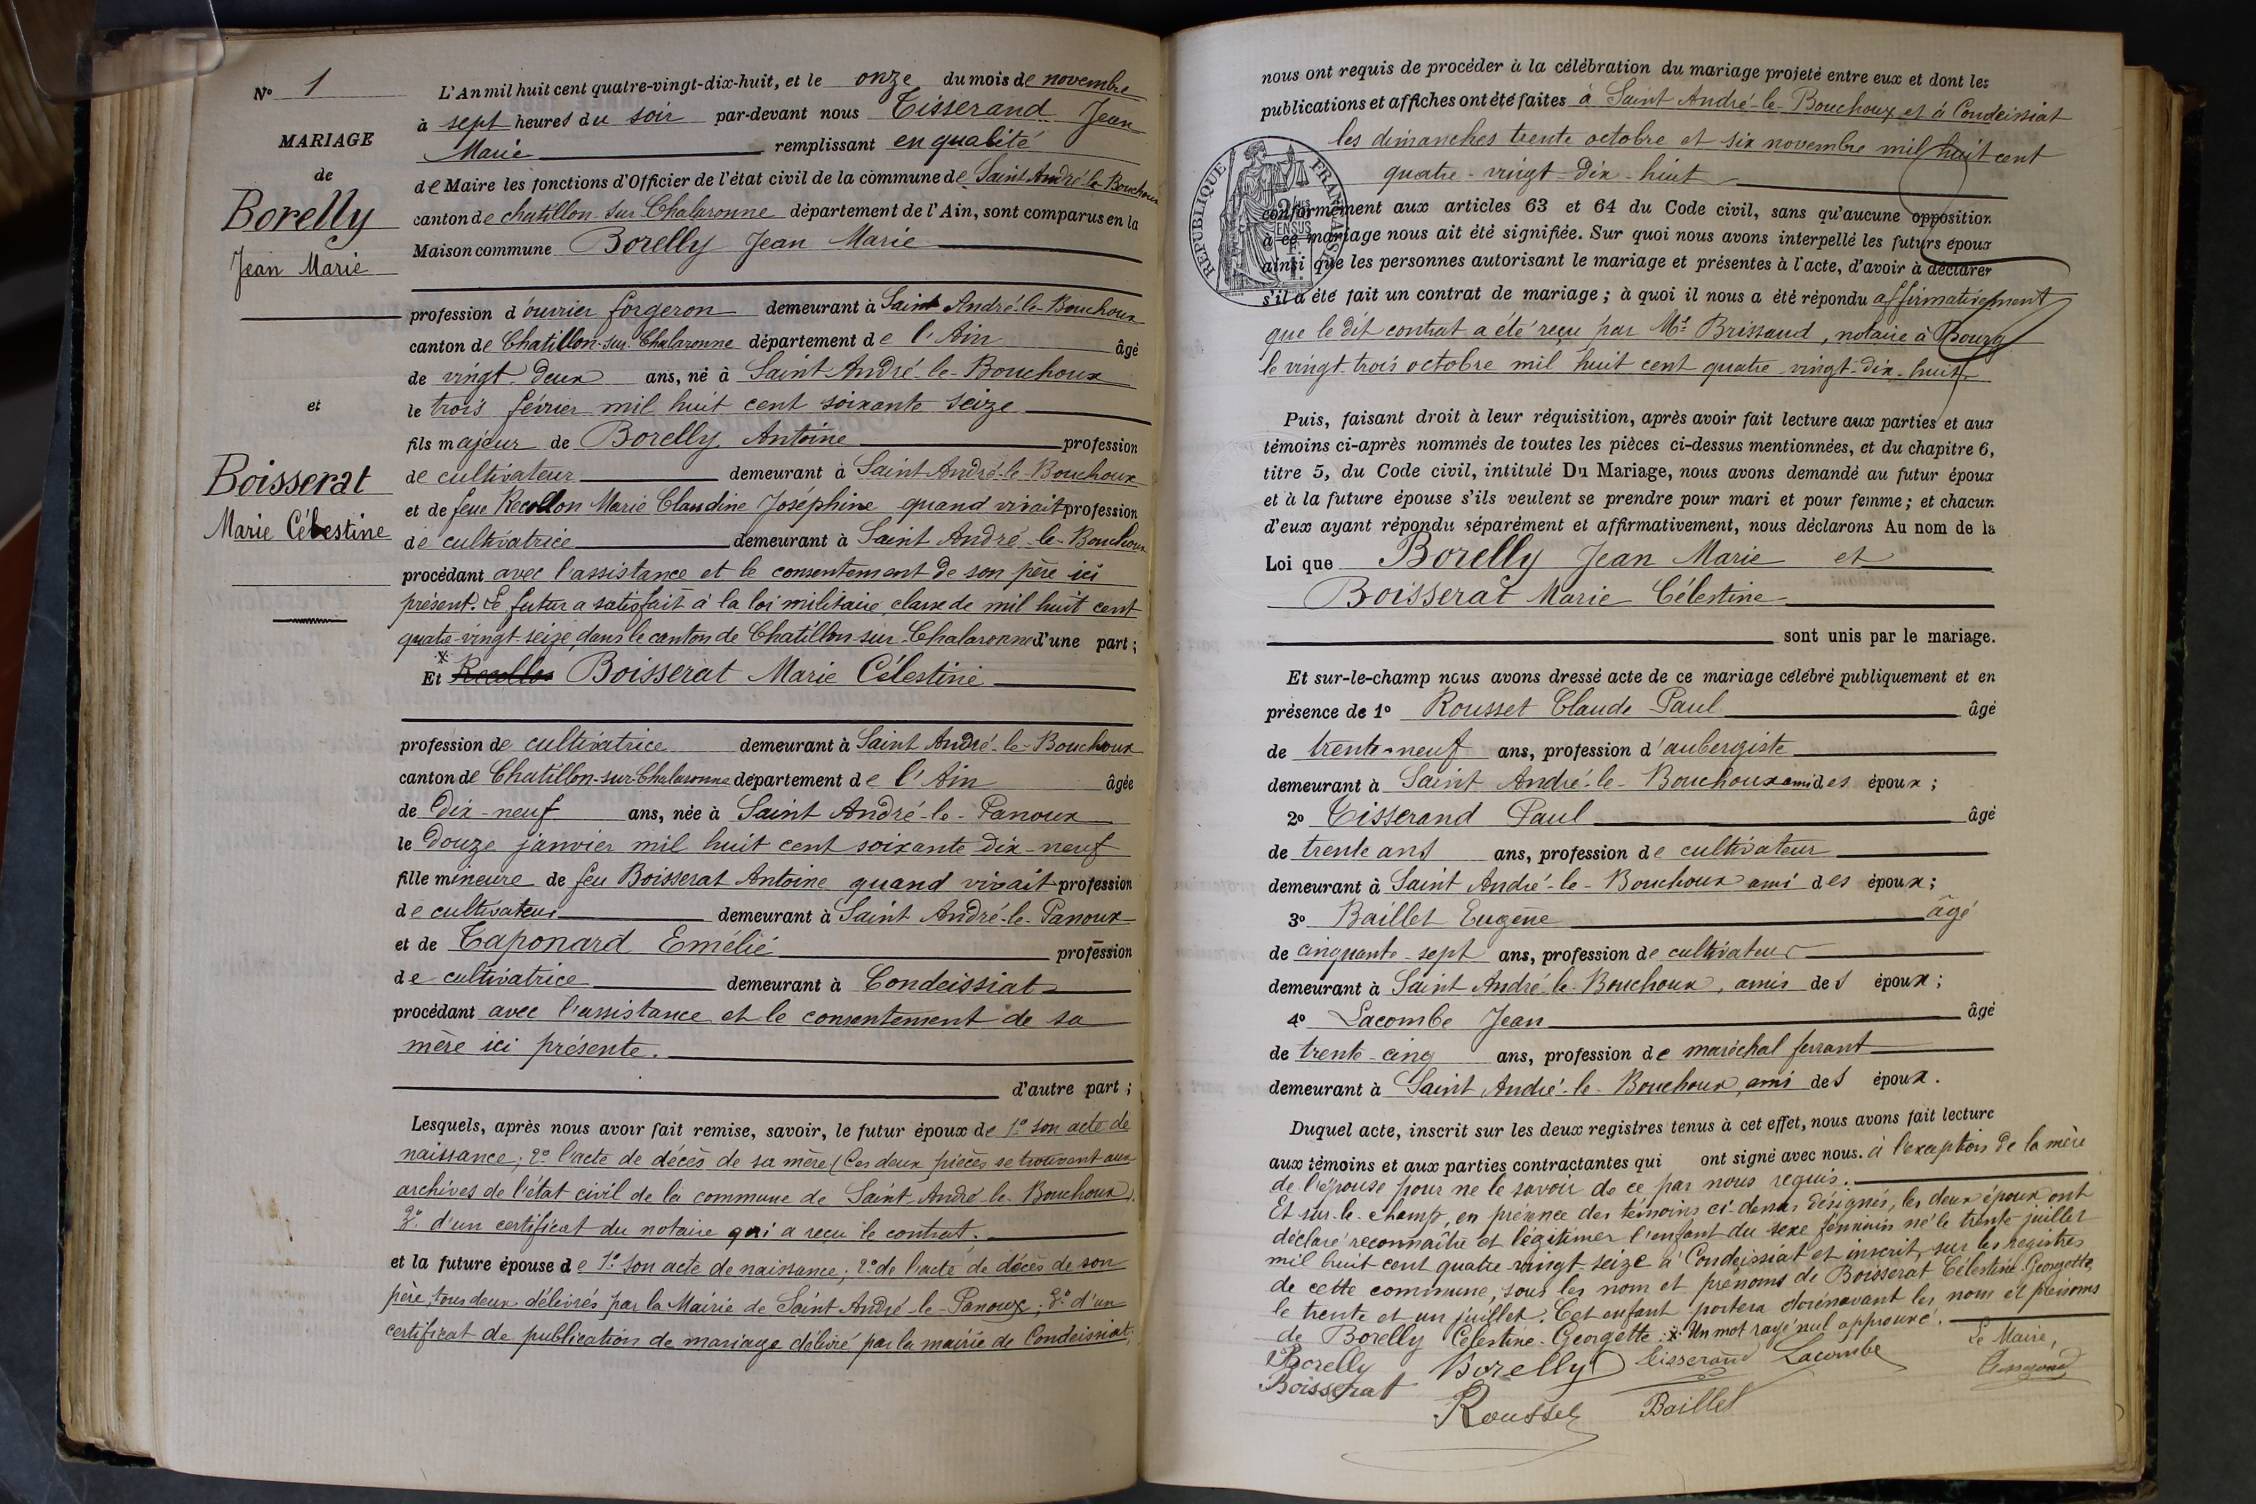 N° 1
MARIAGE
de
Borelly
Jean Marie
et
Boisserat
Marie Célestine
L'An mil huit cent quatre-vingt-dix-huit, et le onze du mois de novembre
à sept heures du soir par-devant nous Tisserand Jean
Marie remplissant en qualité
de Maire les fonctions d'Officier de l'état civil de la commune de Saint André-le-Bouchoux
canton de chatillon-sur-Chalaronne département de l'Ain, sont comparus en la
Maison commune Borelly Jean Marie
profession d'ouvrier forgeron demeurant à Saint André-le-Bouchoux
canton de Chatillon-sur-Chalaronne département de l'Ain âgé
de vingt-deux ans, né à Saint André-le-Bouchoux
le trois février mil huit cent soixante seize
fils majeur de Borelly Antoine profession
de cultivateur demeurant à Saint André-le-Bouchoux
et de feue Recollon Marie Claudine Joséphine quand vivait profession
de cultivatrice demeurant à Saint André-le-Bouchoux
procédant avec l'assistance et le consentement de son père ici
présent. Le futur a satisfait à la loi militaire, classe de mil huit cent
quatre-vingt-seize, dans le canton de Chatillon-sur-Chalaronne d'une part ;
x
Et Recollon Boisserat Marie Célestine
profession de cultivatrice demeurant à Saint André-le-Bouchoux
canton de Chatillon-sur-Chalaronne département de l'Ain âgée
de dix-neuf ans, née à Saint André-le-Panoux
le douze janvier mil huit cent soixante dix-neuf
fille mineure de feu Boisserat Antoine quand vivait profession
de cultivateur demeurant à Saint André-le-Panoux
et de Taponard Emélie profession
de cultivatrice demeurant à Condeissiat
procédant avec l'assistance et le consentement de sa
mère ici présente.
d'autre part ;
Lesquels, après nous avoir fait remise, savoir, le futur époux de 1° son acte de
naissance ; 2° l'acte de décès de sa mère (Ces deux pièces se trouvent aux
archives de l'état civil de la commune de Saint-André-le-Bouchoux).
3° d'un certificat du notaire qui a reçu le contrat.
et la future épouse de 1° son acte de naissance ; 2° de l'acte de décès de son
père, tous deux délivrés par la Mairie de Saint André-le-Panoux ; 3° d'un
certificat de publication de mariage délivré par la mairie de Condeissiat ;
nous ont requis de procéder à la célébration du mariage projeté entre eux et dont les
publications et affiches ont été faites à Saint André-le-Bouchoux et à Condeissiat
les dimanches trente octobre et six novembre mil huit cent
quatre-vingt-dix-huit
RÉPUBLIQUE FRANÇAISE
conformément aux articles 63 et 64 du Code civil, sans qu'aucune opposition
à ce mariage nous ait été signifiée. Sur quoi nous avons interpellé les futurs époux
ainsi que les personnes autorisant le mariage et présentes à l'acte, d'avoir à déclarer
s'il a été fait un contrat de mariage ; à quoi il nous a été répondu affirmativement
que le dit contrat a été reçu par Me Brissaud, notaire à Bourg
le vingt-trois octobre mil huit cent quatre-vingt-dix-huit
Puis, faisant droit à leur réquisition, après avoir fait lecture aux parties et aux
témoins ci-après nommés de toutes les pièces ci-dessus mentionnées, et du chapitre 6,
titre 5, du Code civil, intitulé Du Mariage, nous avons demandé au futur époux
et à la future épouse s'ils veulent se prendre pour mari et pour femme ; et chacun
d'eux ayant répondu séparément et affirmativement, nous déclarons Au nom de la
Loi que Borelly Jean Marie et
Boisserat Marie Célestine
sont unis par le mariage.
Et sur-le-champ nous avons dressé acte de ce mariage célébré publiquement et en
présence de 1° Rousset Claude Paul âgé
de trente-neuf ans, profession d'aubergiste
demeurant à Saint André-le-Bouchoux ami des époux ;
2° Tisserand Paul âgé
de trente ans ans, profession de cultivateur
demeurant à Saint André-le-Bouchoux ami des époux ;
3° Baillet Eugène âgé
de cinquante-sept ans, profession de cultivateur
demeurant à Saint André-le-Bouchoux, amis des époux ;
4° Lacombe Jean âgé
de trente-cinq ans, profession de maréchal ferrant
demeurant à Saint André-le-Bouchoux, ami des époux.
Duquel acte, inscrit sur les deux registres tenus à cet effet, nous avons fait lecture
aux témoins et aux parties contractantes qui ont signé avec nous. à l'exception de la mère
de l'épouse pour ne le savoir de ce par nous requis.
Et sur-le-champ, en présence des témoins ci-dessus désignés, les deux époux ont
déclaré reconnaître et légitimer l'enfant du sexe féminin né le trente juillet
mil huit cent quatre-vingt seize à Condeissiat et inscrit sur les registres
de cette commune, sous les nom et prénoms de Boisserat Célestine Georgette,
le trente et un juillet. Cet enfant portera dorénavant les nom et prénoms
de Borelly Célestine-Georgette. x Un mot rayé nul approuvé.
Le Maire,
Borelly Borelly Tisserand Lacombe Tisserand
Boisserat Rousset Baillet